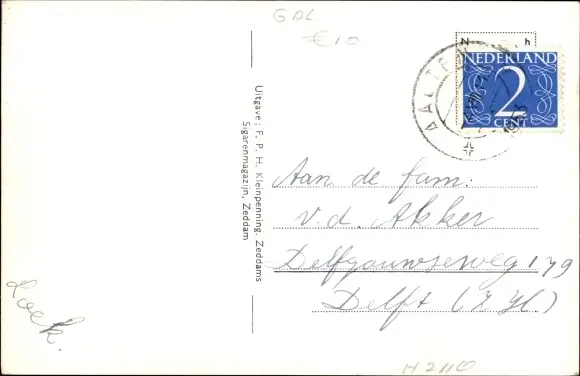 GDL
€10
N h
NEDERLAND
2
CENT
AALTEN
Uitgave: F. P. H. Kleinpenning, Zeddams
Sigarenmagazijn, Zeddam
Aan de fam:
v.d. Akker
Delfgauwseweg 179
Delft (Z.H.)
Loek.
H2110